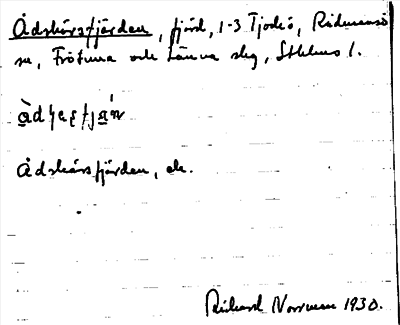 Ådskärsfjärden, fjärd, 1-3 Tjockö, Rådmansö
sn, Frötuna och Länna slg, Sthlms l.
Ådskärsfjärden, ek.
Rickard Norrman 1930.